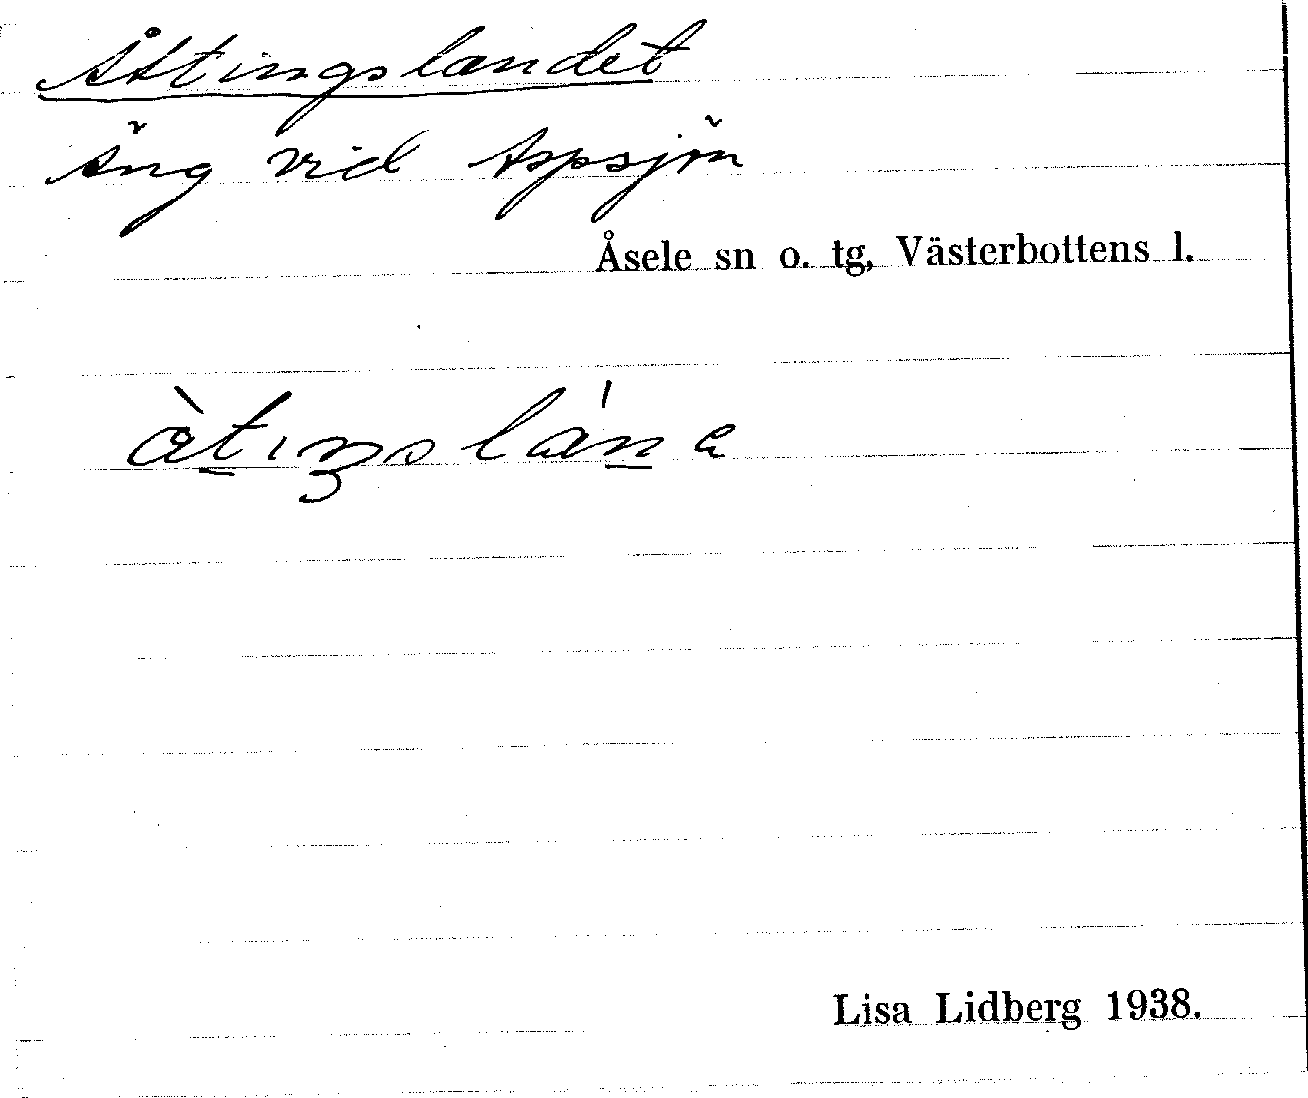 Åttingslandet
Äng vid Aspsjön
Åsele sn o. tg, Västerbottens l.
àtıŋsláne
Lisa Lidberg 1938.